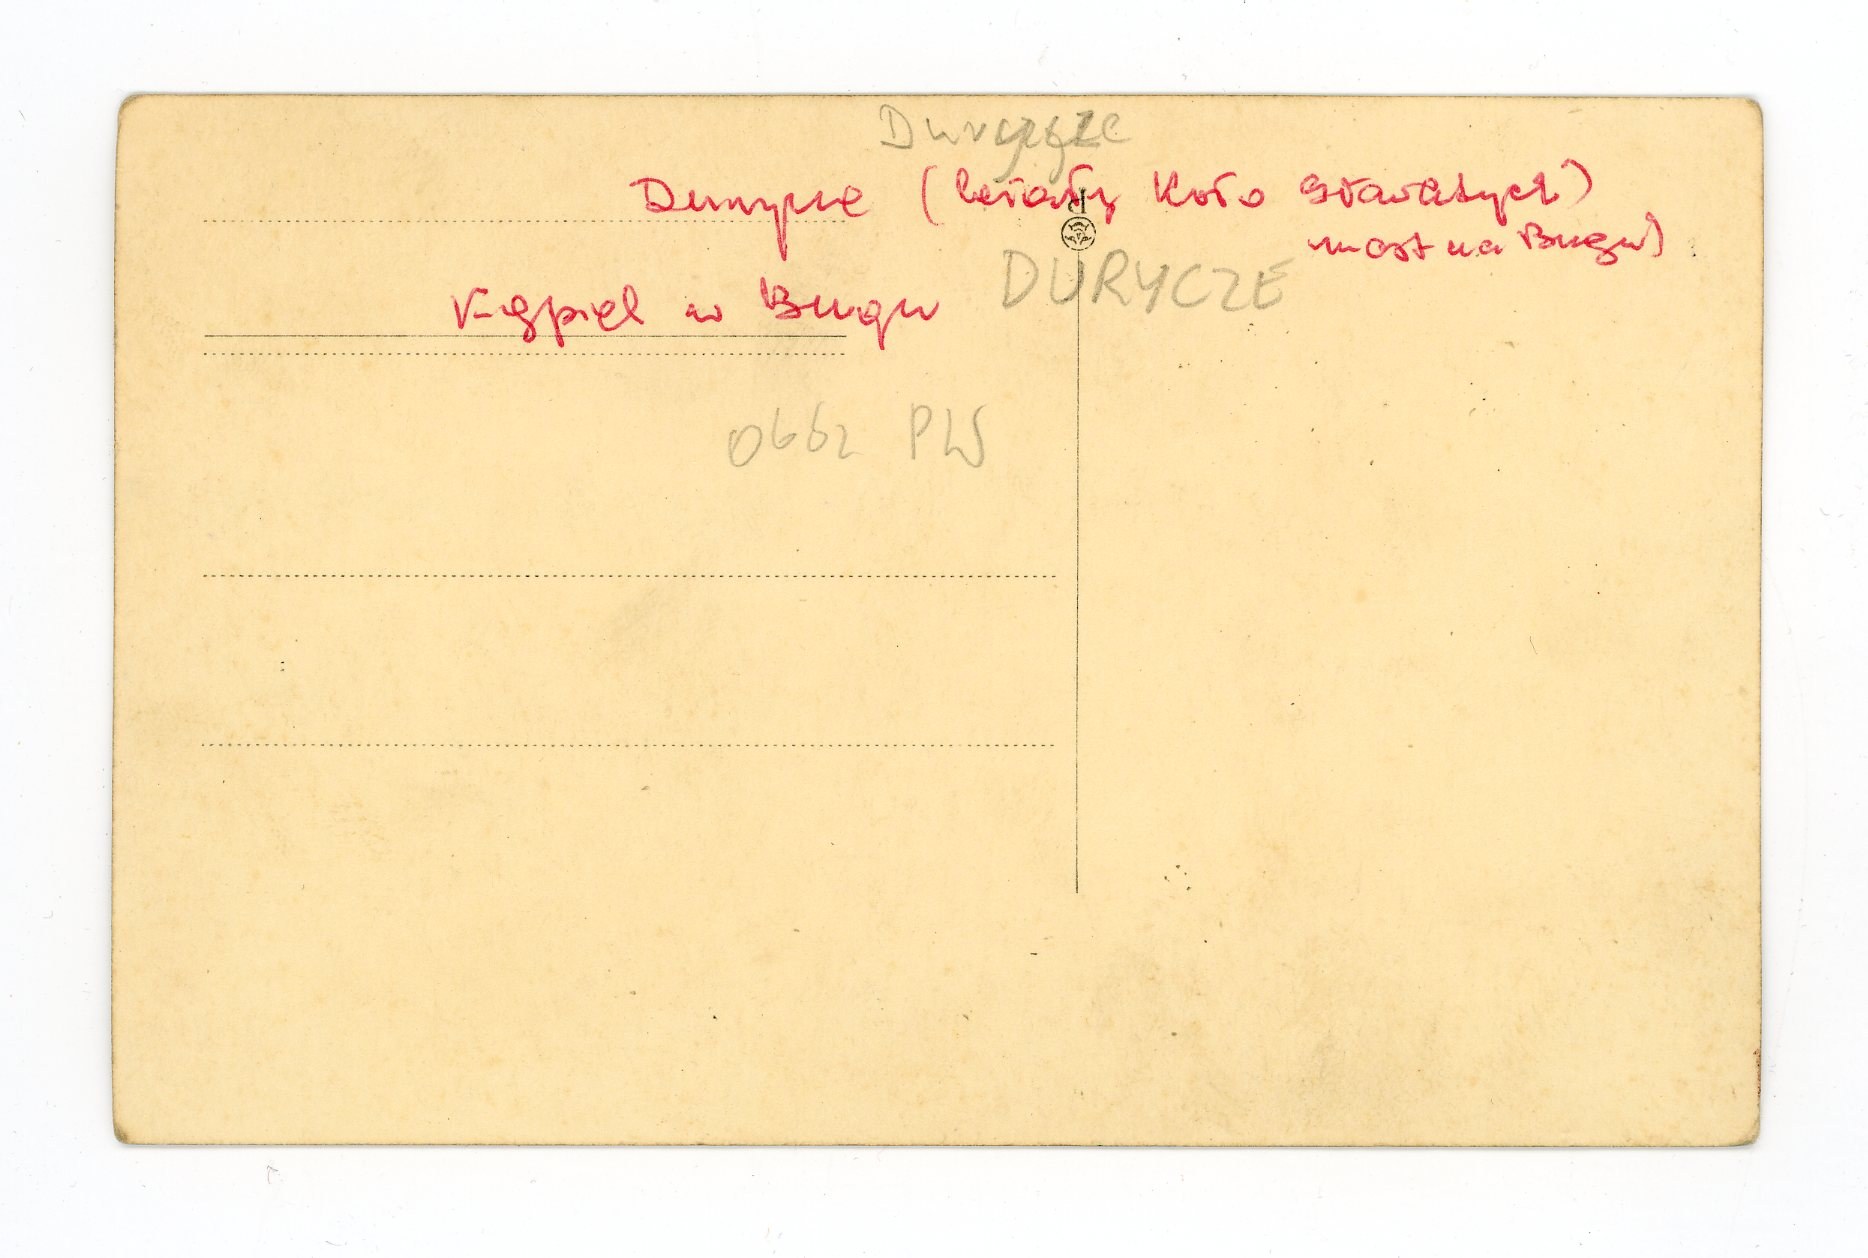 Durycze
Durycze (leżały koło Sławatycz)
most na Bugu)
DURYCZE
Kąpiel w Bugu
0662 PLS